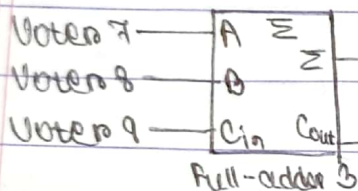 Voter 7 A Σ
Σ
Voter 8 B
Voter 9 Cin Cout
Full-adder 3